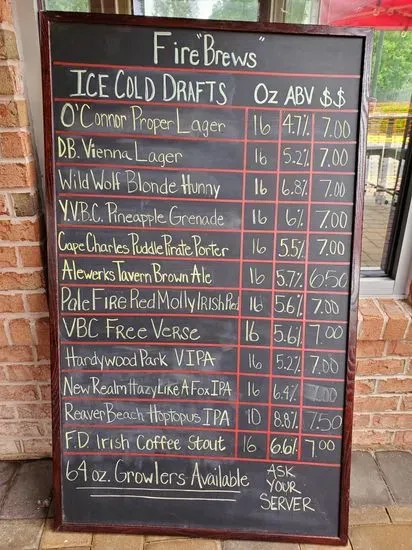 Fire "Brews"
ICE COLD DRAFTS Oz ABV $$
O'Connor Proper Lager 16 4.7% 7.00
D.B. Vienna Lager 16 5.2% 7.00
Wild Wolf Blonde Hunny 16 6.8% 7.00
Y.V.B.C. Pineapple Grenade 16 6% 7.00
Cape Charles Puddle Pirate Porter 16 5.5% 7.00
Alewerks Tavern Brown Ale 16 5.7% 6.50
Pale Fire Red Molly Irish Red 16 5.6% 7.00
VBC Free Verse 16 5.6% 7.00
Hardywood Park VIPA 16 5.2% 7.00
New Realm Hazy Like A Fox IPA 16 6.4% 7.00
Reaver Beach Hoptopus IPA 10 8.8% 7.50
F.D Irish Coffee Stout 16 6.6% 7.00
64 oz. Growlers Available ASK
YOUR
SERVER